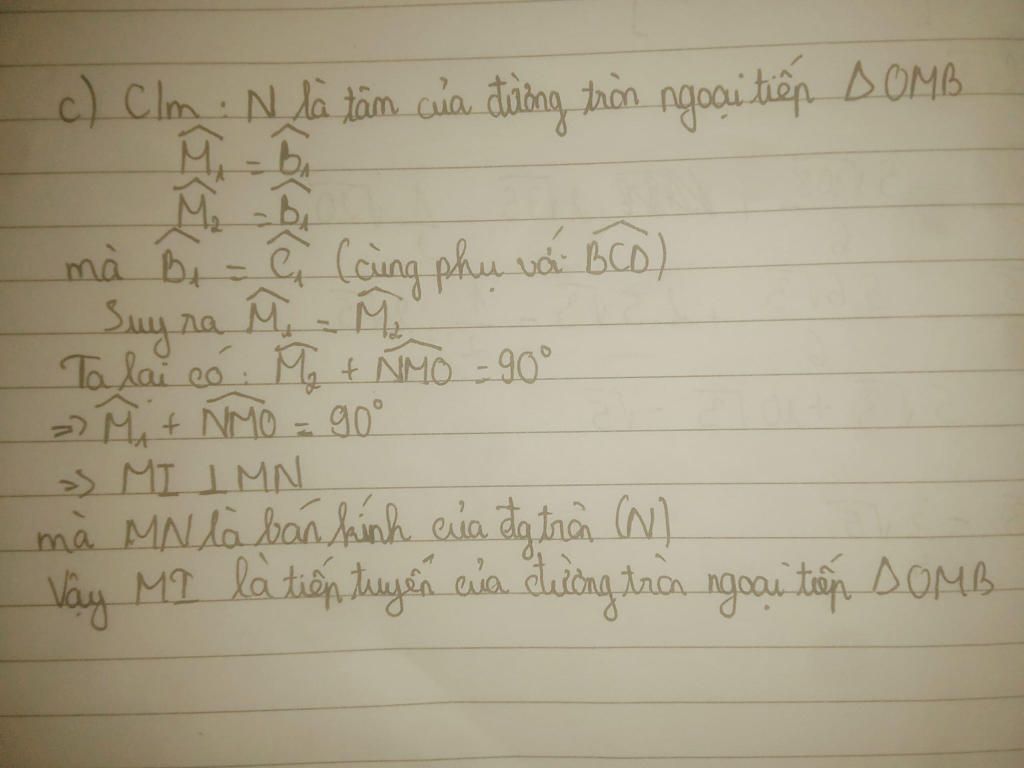 c) C/m : N là tâm của đường tròn ngoại tiếp Δ OMB
M̂₁ = B̂₁
M̂₂ = B̂₁
mà B̂₁ = Ĉ₁ (cùng phụ với B̂CD)
Suy ra M̂₁ = M̂₂
Ta lại có : M̂₂ + N̂MO = 90°
=> M̂₁ + N̂MO = 90°
=> MI ⊥ MN
mà MN là bán kính của đg tròn (N)
Vậy MI là tiếp tuyến của đường tròn ngoại tiếp Δ OMB